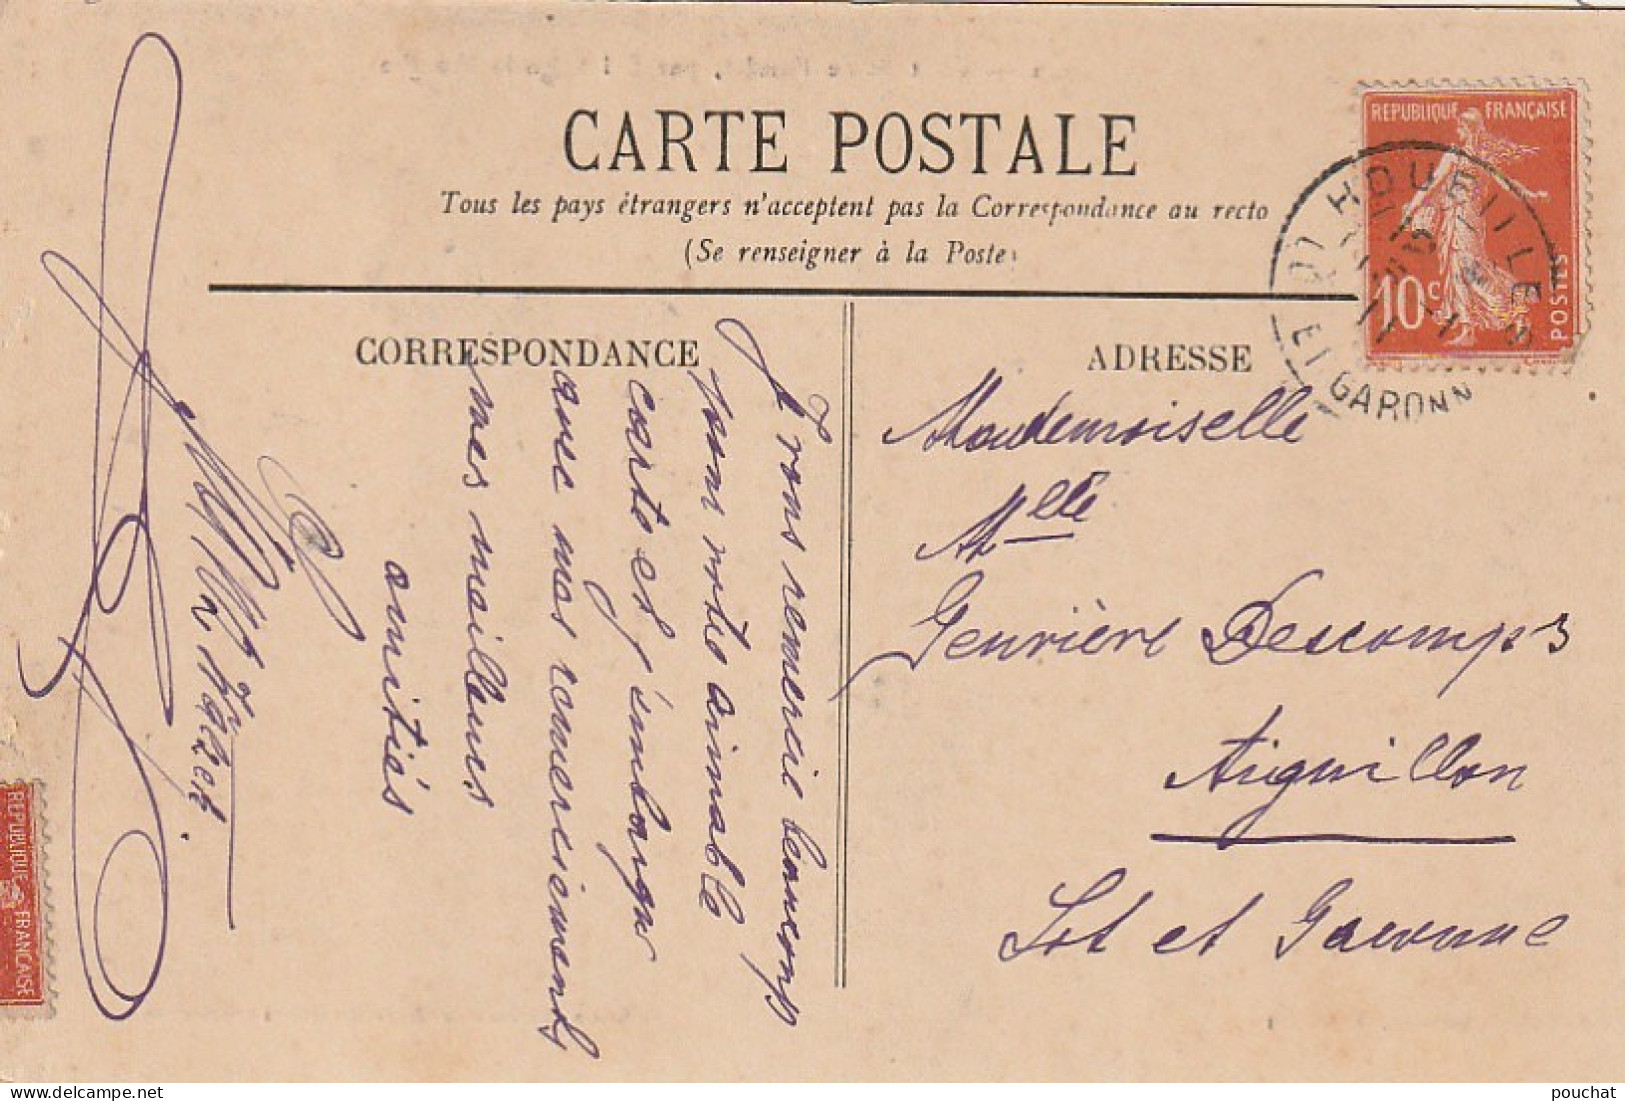 CARTE POSTALE
Tous les pays étrangers n'acceptent pas la Correspondance au recto
(Se renseigner à la Poste)
REPUBLIQUE FRANÇAISE
10c
POSTES
HOUEILLES
LOT ET GARONNE
CORRESPONDANCE
ADRESSE
Je vous remercie beaucoup
pour votre aimable
carte et j'embarque
avec mes remerciements
mes meilleurs
amitiés
Mademoiselle
Mlle
Genvière Descomps
Aiguillon
Lot et Garonne
REPUBLIQUE FRANÇAISE
pouchat